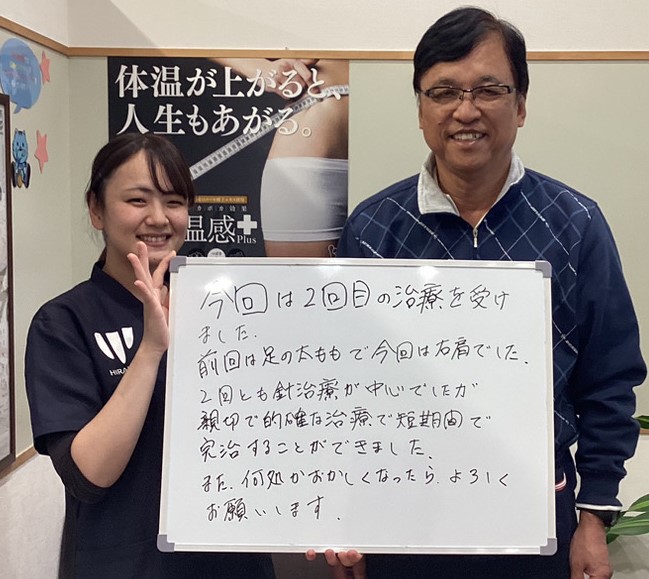 体温が上がると、
人生もあがる。
温感
Plus
HIRA
今回は2回目の治療を受け
ました.
前回は足の太ももで今回は右肩でした.
2回とも針治療が中心でしたが
親切で的確な治療で短期間で
完治することができました.
また.何処かおかしくなったら.よろしく
お願いします.